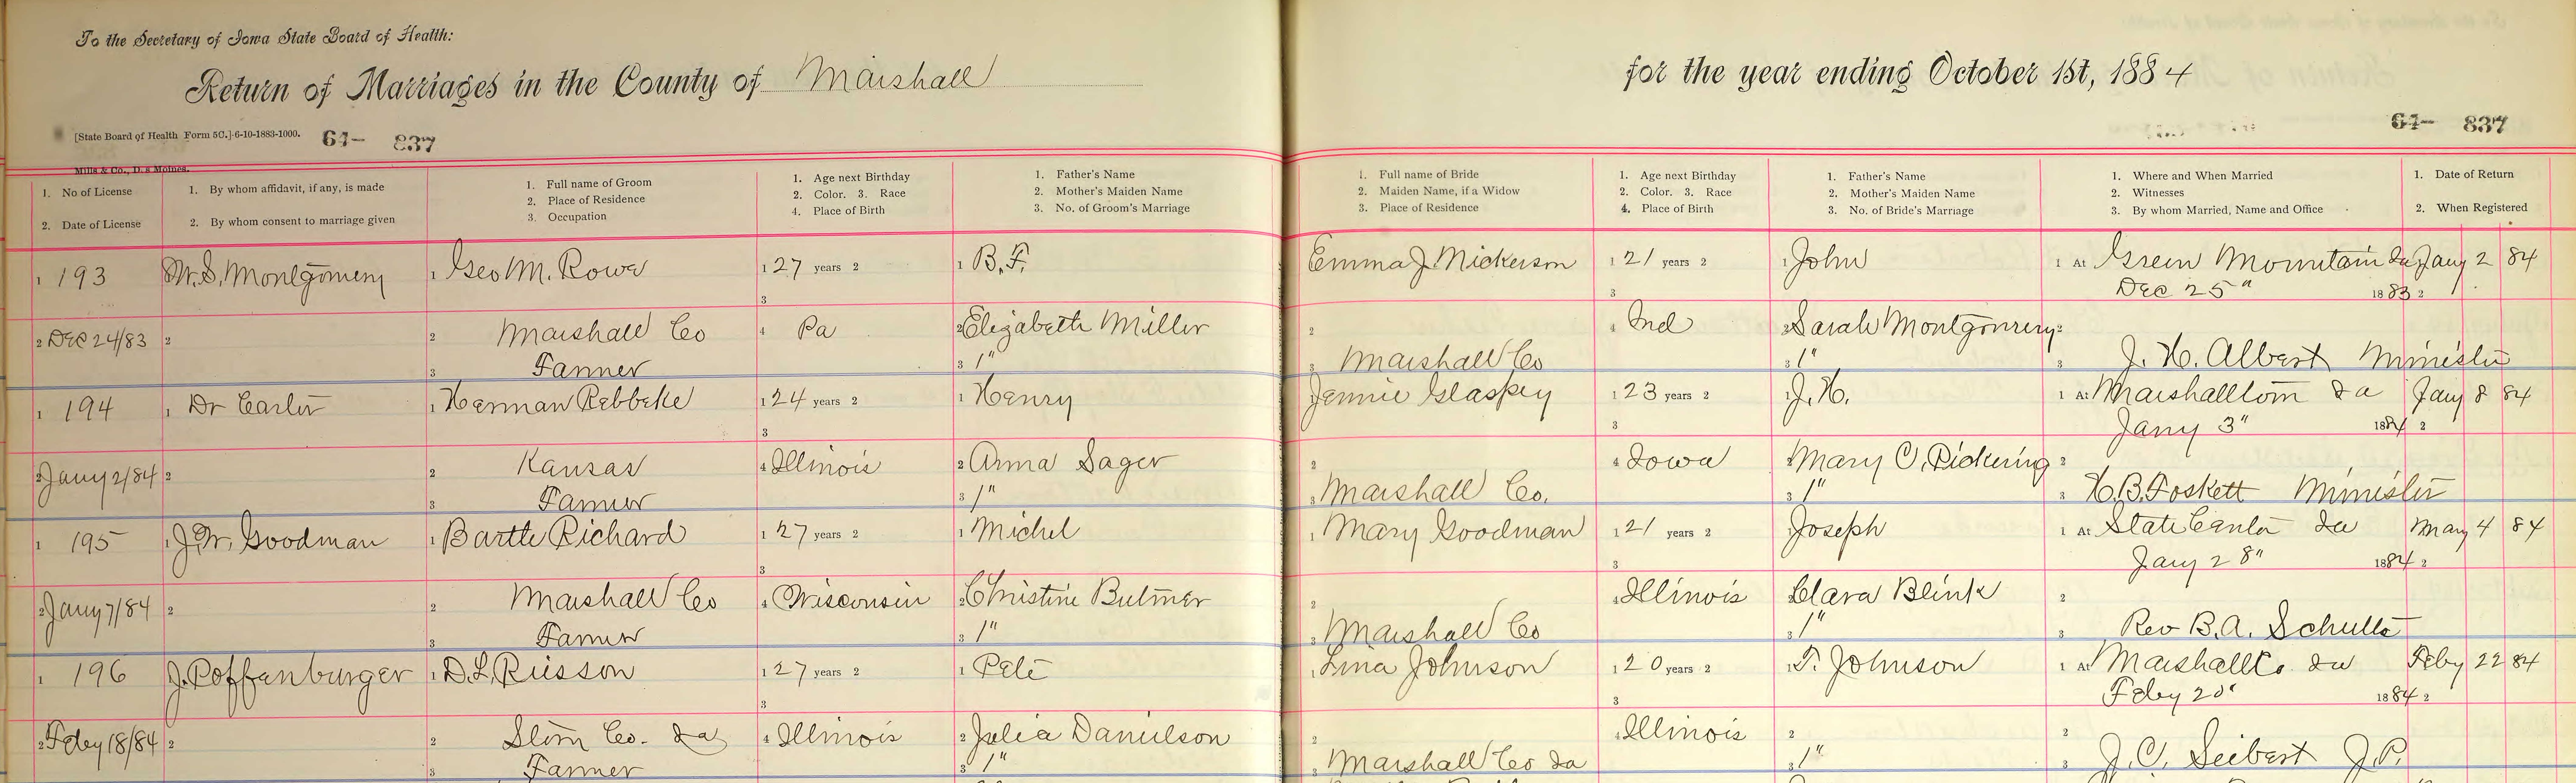 To the Secretary of Iowa State Board of Health:
Return of Marriages in the County of Marshall for the year ending October 1st, 1884
[State Board of Health Form 5C.]-6-10-1883-1000. 64- 837 64- 837
Mills & Co., Des Moines.
1. No of License 1. By whom affidavit, if any, is made 1. Full name of Groom 1. Age next Birthday 1. Father's Name 1. Full name of Bride 1. Age next Birthday 1. Father's Name 1. Where and When Married 1. Date of Return
2. Place of Residence 2. Color. 3. Race 2. Mother's Maiden Name 2. Maiden Name, if a Widow 2. Color. 3. Race 2. Mother's Maiden Name 2. Witnesses
2. Date of License 2. By whom consent to marriage given 3. Occupation 4. Place of Birth 3. No. of Groom's Marriage 3. Place of Residence 4. Place of Birth 3. No. of Bride's Marriage 3. By whom Married, Name and Office 2. When Registered
1 193 W. S. Montgomery 1 Geo M. Rowe 1 27 years 2 1 B. F. Emma J. Nickerson 1 21 years 2 1 John 1 At Green Mountain Ia Jany 2 84
3 3 Dec 25" 1883 2
2 Dec 24/83 2 2 Marshall Co 4 Pa 2 Elizabeth Miller 2 4 Ind 2 Sarah Montgomery 2
3 Farmer 3 1" 3 Marshall Co 3 1" 3 J. H. Albert Minister
1 194 1 Dr Carter 1 Herman Rebbeke 1 24 years 2 1 Henry Jennie Glaspey 1 23 years 2 1 J. H. 1 At Marshalltown Ia Jany 8 84
3 3 Jany 3" 1884 2
2 Jany 2/84 2 2 Kansas 4 Illinois 2 Anna Sager 2 4 Iowa 2 Mary C. Pickering 2
3 Farmer 3 1" 3 Marshall Co. 3 1" 3 H. B. Foskett Minister
1 195 1 J. W. Goodman 1 Bartle Richard 1 27 years 2 1 Michel 1 Mary Goodman 1 21 years 2 Joseph 1 At State Center Ia May 4 84
3 3 Jany 28" 1884 2
2 Jany 7/84 2 2 Marshall Co 4 Wisconsin 2 Christine Bulmer 2 4 Illinois Clara Blink 2
3 Farmer 3 1" 3 Marshall Co 3 1" 3 Rev B. A. Schulte
1 196 J. Poffenburger 1 D. L. Risson 1 27 years 2 1 Pete 1 Lina Johnson 1 20 years 2 1 T. Johnson 1 At Marshall Co. Ia Feby 22 84
3 3 Feby 20" 1884 2
2 Feby 18/84 2 2 Co. Ia 4 Illinois 2 Julia Danielson 2 4 Illinois 2 2
3 Farmer 3 1" 3 Marshall Co Ia 3 1" 3 J. C. Seibert J.P.